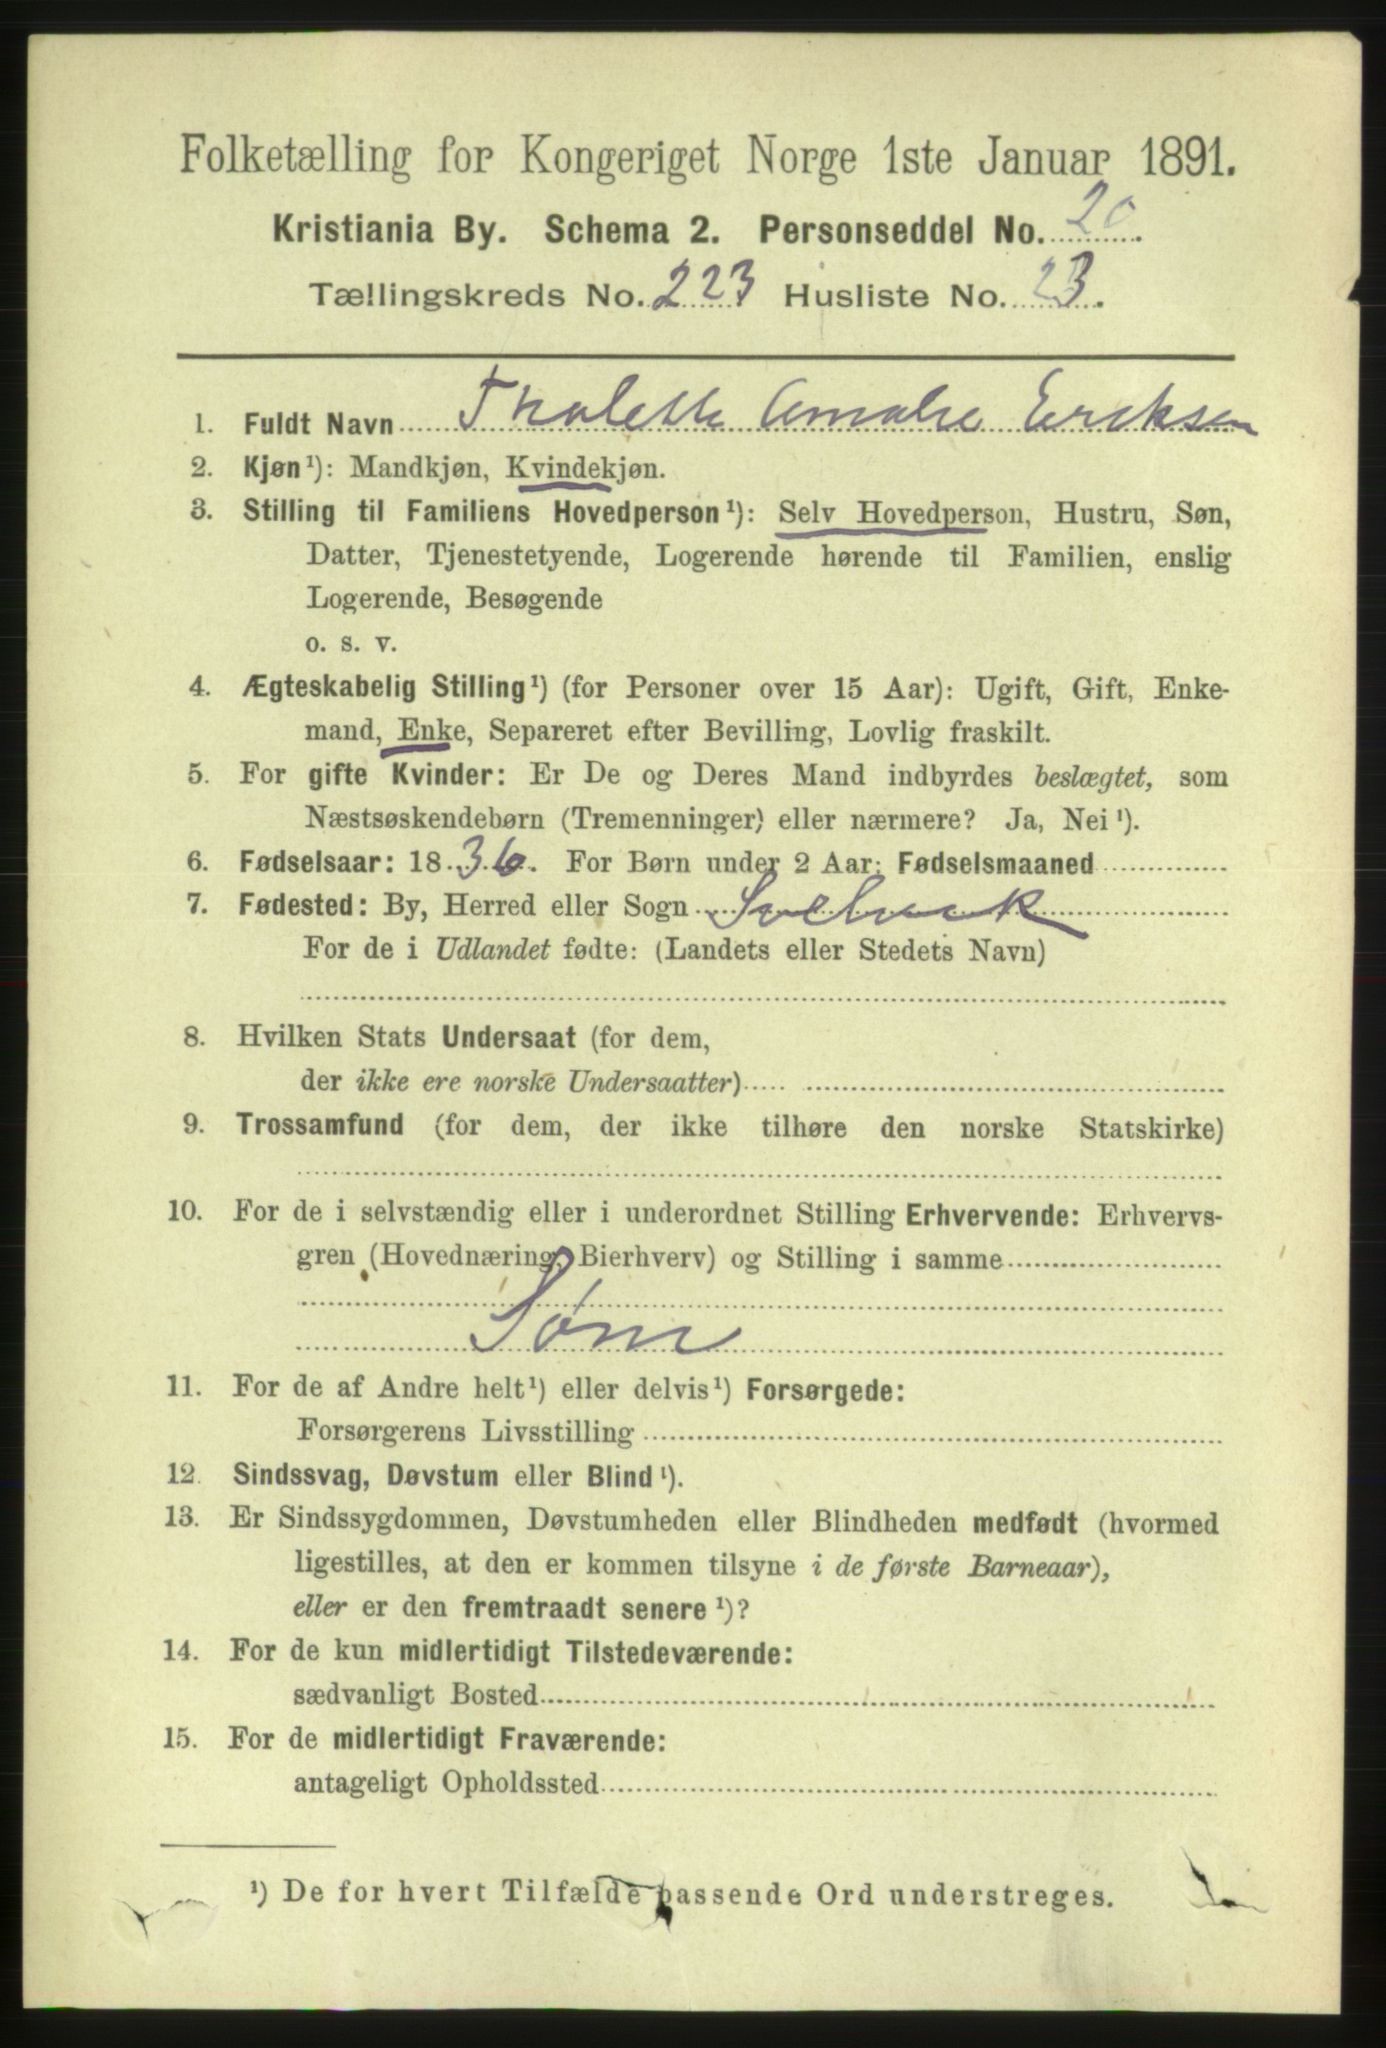 Folketælling for Kongeriget Norge 1ste Januar 1891.
Kristiania By. Schema 2. Personseddel No. 20.
Tællingskreds No. 223 Husliste No. 23.
1. Fuldt Navn Thalette Amalie Eriksen
2. Kjøn¹): Mandkjøn, Kvindekjøn.
3. Stilling til Familiens Hovedperson¹): Selv Hovedperson, Hustru, Søn,
Datter, Tjenestetyende, Logerende hørende til Familien, enslig
Logerende, Besøgende
o. s. v.
4. Ægteskabelig Stilling¹) (for Personer over 15 Aar): Ugift, Gift, Enke-
mand, Enke, Separeret efter Bevilling, Lovlig fraskilt.
5. For gifte Kvinder: Er De og Deres Mand indbyrdes beslægtet, som
Næstsøskendebørn (Tremenninger) eller nærmere? Ja, Nei¹).
6. Fødselsaar: 1836. For Børn under 2 Aar: Fødselsmaaned
7. Fødested: By, Herred eller Sogn Svelvick
For de i Udlandet fødte: (Landets eller Stedets Navn)
8. Hvilken Stats Undersaat (for dem,
der ikke ere norske Undersaatter)
9. Trossamfund (for dem, der ikke tilhøre den norske Statskirke)
10. For de i selvstændig eller i underordnet Stilling Erhvervende: Erhvervs-
gren (Hovednæring, Bierhverv) og Stilling i samme
Søm
11. For de af Andre helt¹) eller delvis¹) Forsørgede:
Forsørgerens Livsstilling
12. Sindssvag, Døvstum eller Blind¹).
13. Er Sindssygdommen, Døvstumheden eller Blindheden medfødt (hvormed
ligestilles, at den er kommen tilsyne i de første Barneaar),
eller er den fremtraadt senere¹)?
14. For de kun midlertidigt Tilstedeværende:
sædvanligt Bosted
15. For de midlertidigt Fraværende:
antageligt Opholdssted
¹) De for hvert Tilfælde passende Ord understreges.